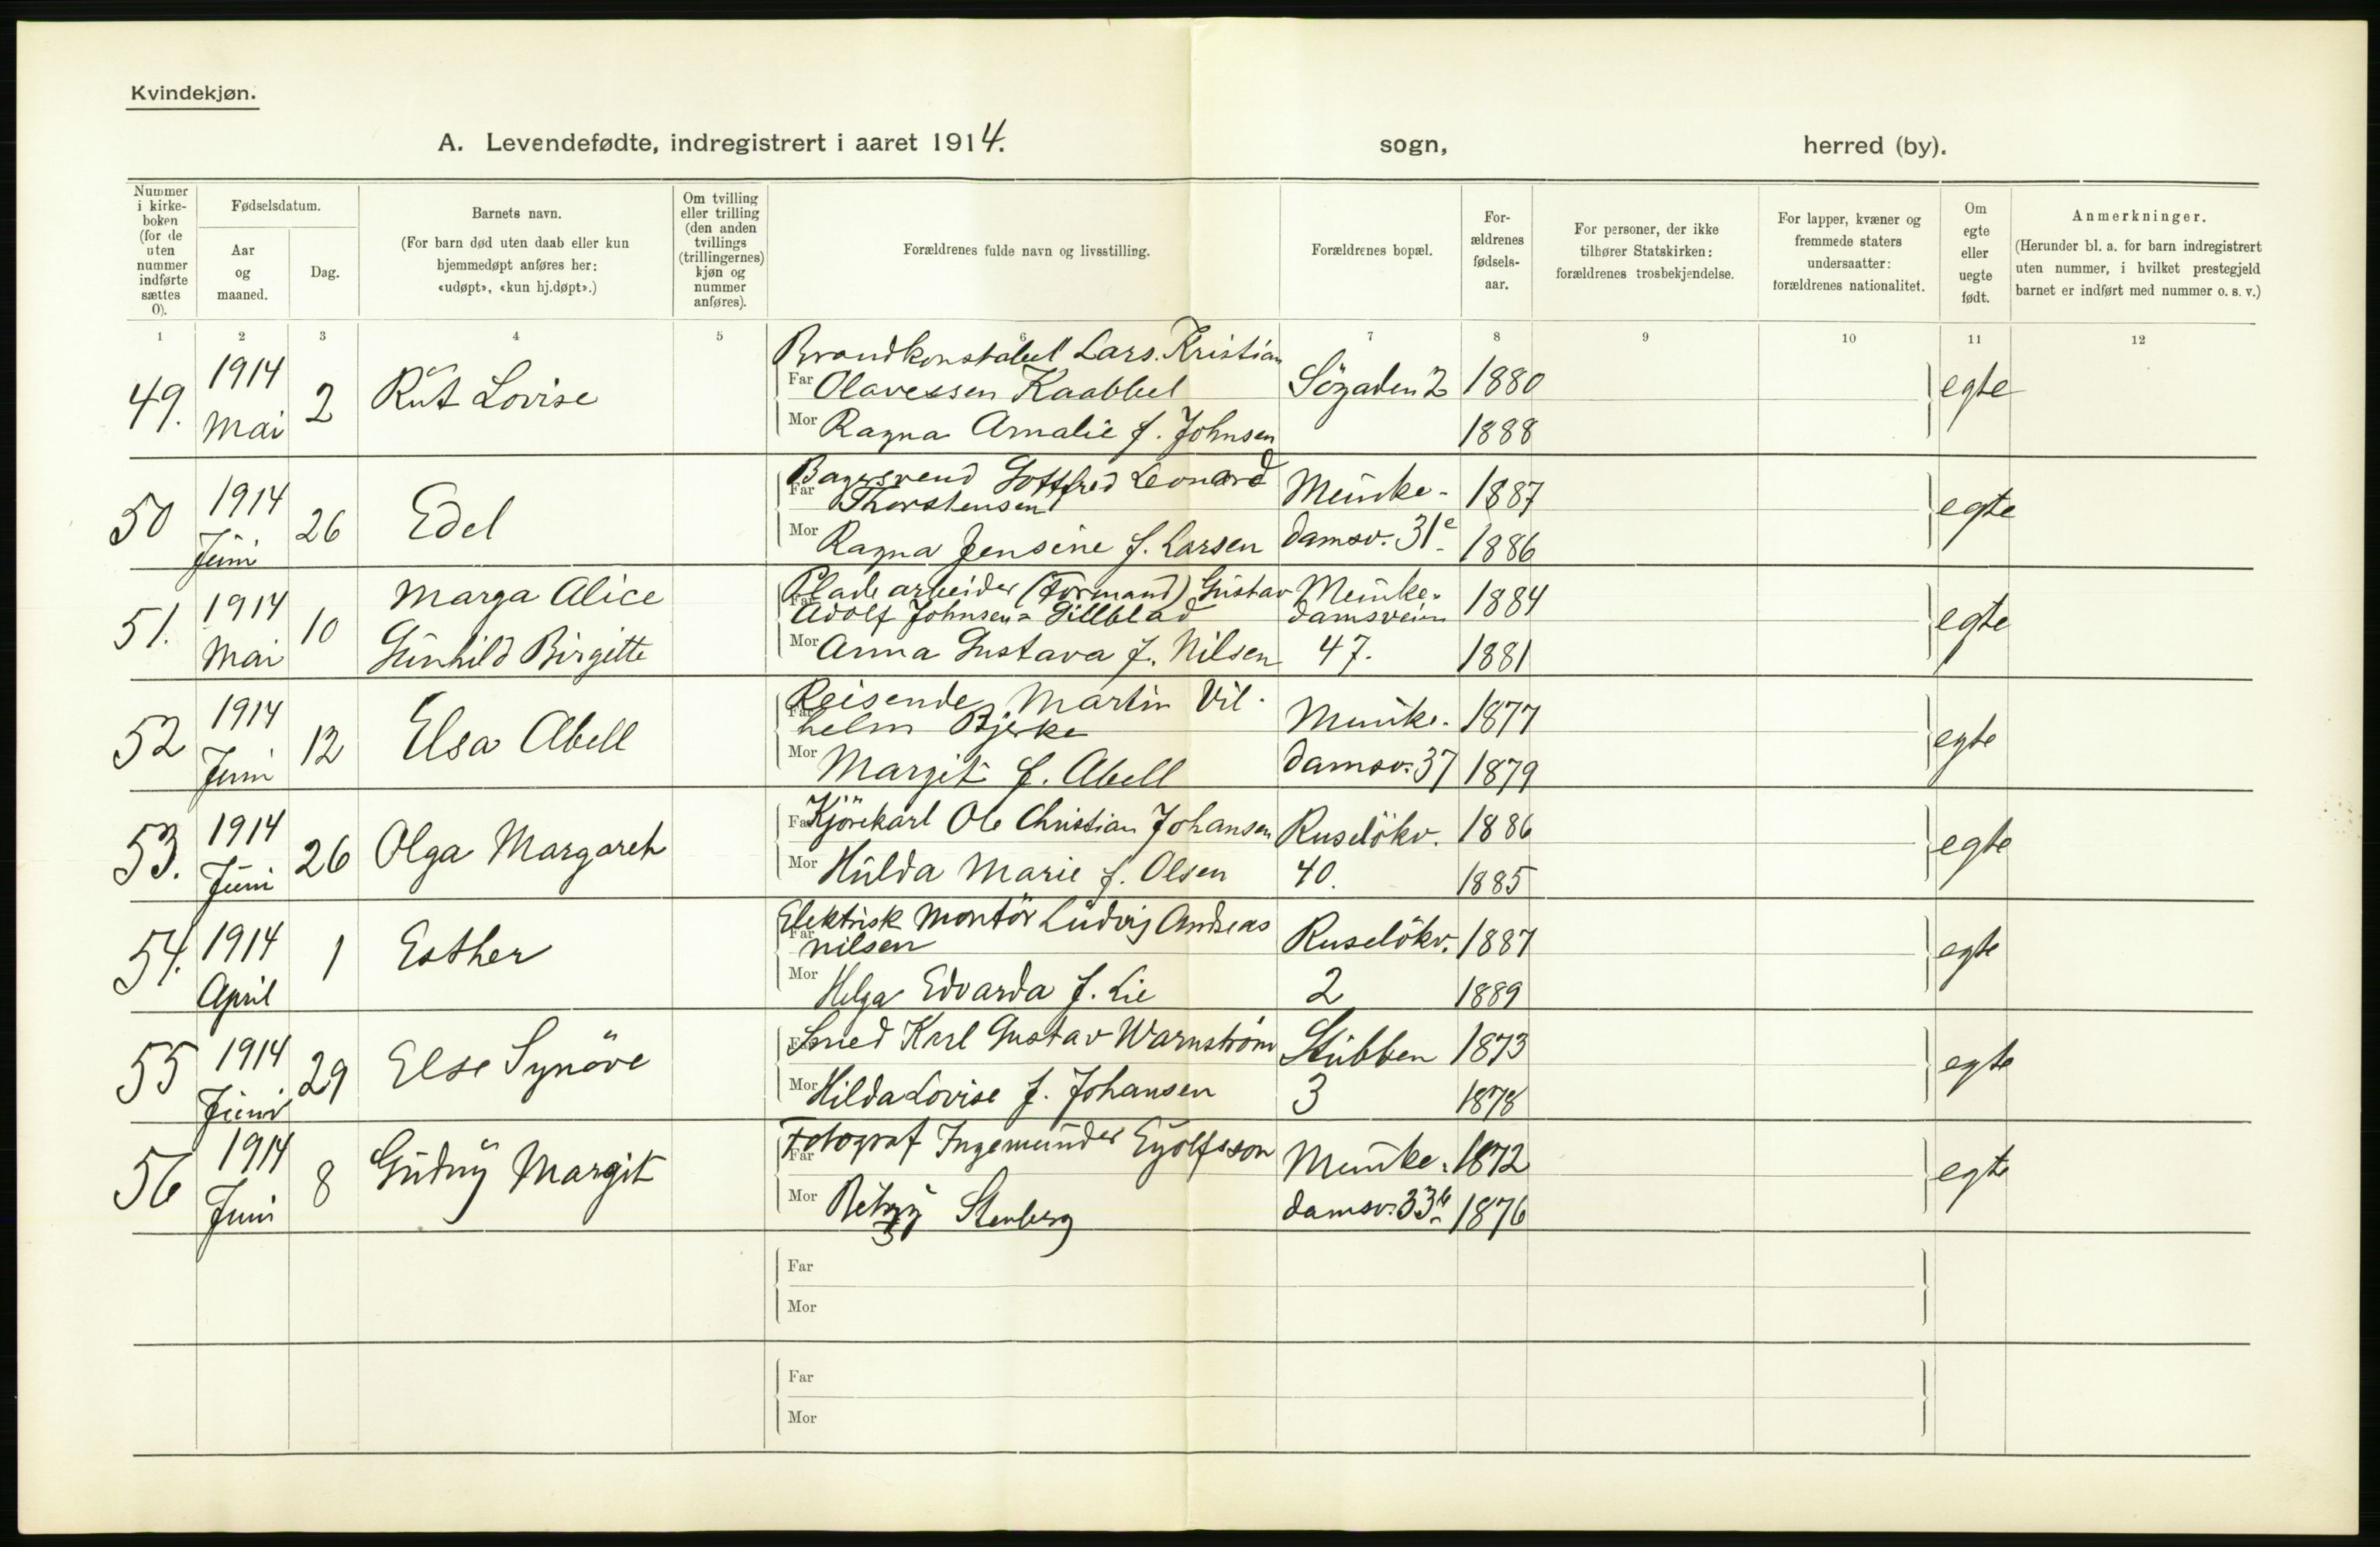 Kvindekjøn.
A. Levendefødte, indregistrert i aaret 1914. sogn, herred (by).
Nummer i kirke-boken (for de uten nummer indførte sættes 0).
Fødselsdatum.
Aar og maaned.
Dag.
Barnets navn.
(For barn død uten daab eller kun hjemmedøpt anføres her: «udøpt», «kun hj.døpt».)
Om tvilling eller trilling (den anden tvillings (trillingernes) kjøn og nummer anføres).
Forældrenes fulde navn og livsstilling.
Forældrenes bopæl.
For-ældrenes fødsels-aar.
For personer, der ikke tilhører Statskirken: forældrenes trosbekjendelse.
For lapper, kvæner og fremmede staters undersaatter: forældrenes nationalitet.
Om egte eller uegte født.
Anmerkninger.
(Herunder bl. a. for barn indregistrert uten nummer, i hvilket prestegjeld barnet er indført med nummer o. s. v.)
1 2 3 4 5 6 7 8 9 10 11 12
49. 1914 Mai 2 Rut Lovise
Brandkonstabel Lars Kristian
Far Olavessen Kaabbel Søgaden 2 1880 egte
Mor Ragna Amalie f. Johnsen 1888
50 1914 Juni 26 Edel
Bagersvend Gottfred Leonard
Far Thorstensen Munke- 1887 egte
Mor Ragna Jensine f. Larsen damsv. 31c 1886
51. 1914 Mai 10 Marga Alice
Gunhild Birgitte
Pladearbeider (Formand) Gustav Munke-
Far Adolf Johnsen= Gillblad damsveien 1884 egte
Mor Anna Gustava f. Nilsen 47. 1881
52 1914 Juni 12 Elsa Abell
Reisende Martin Vil-
Far helm Bjerke Munke- 1877 egte
Mor Margit f. Abell damsv. 37 1879
53. 1914 Juni 26 Olga Margareth
Far Kjörekarl Ole Christian Johansen Ruselökv. 1886 egte
Mor Hulda Marie f. Olsen 40. 1885
54. 1914 April 1 Esther
Elektrisk Montör Ludvig Andreas
Far Nilsen Ruselökv. 1887 egte
Mor Helga Edvarda f. Lie 2 1889
55 1914 Juni 29 Else Synöve
Far Smed Karl Gustav Warnström Stubben 1873 egte
Mor Hilda Lovise f. Johansen 3 1878
56 1914 Juni 8 Gudny Margit
Far Fotograf Ingemunder Eyolfsson Munke- 1872 egte
Mor Stenberg damsv. 33b 1876
Far
Mor
Far
Mor